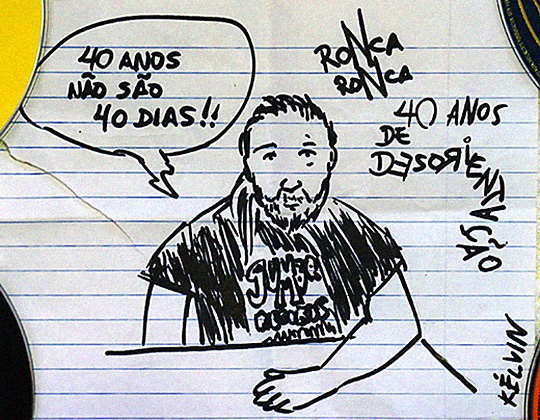 40 ANOS
NÃO SÃO
40 DIAS!!
RONCA
RONCA
40 ANOS
DE
DESORIENTAÇÃO
KÉLVIN